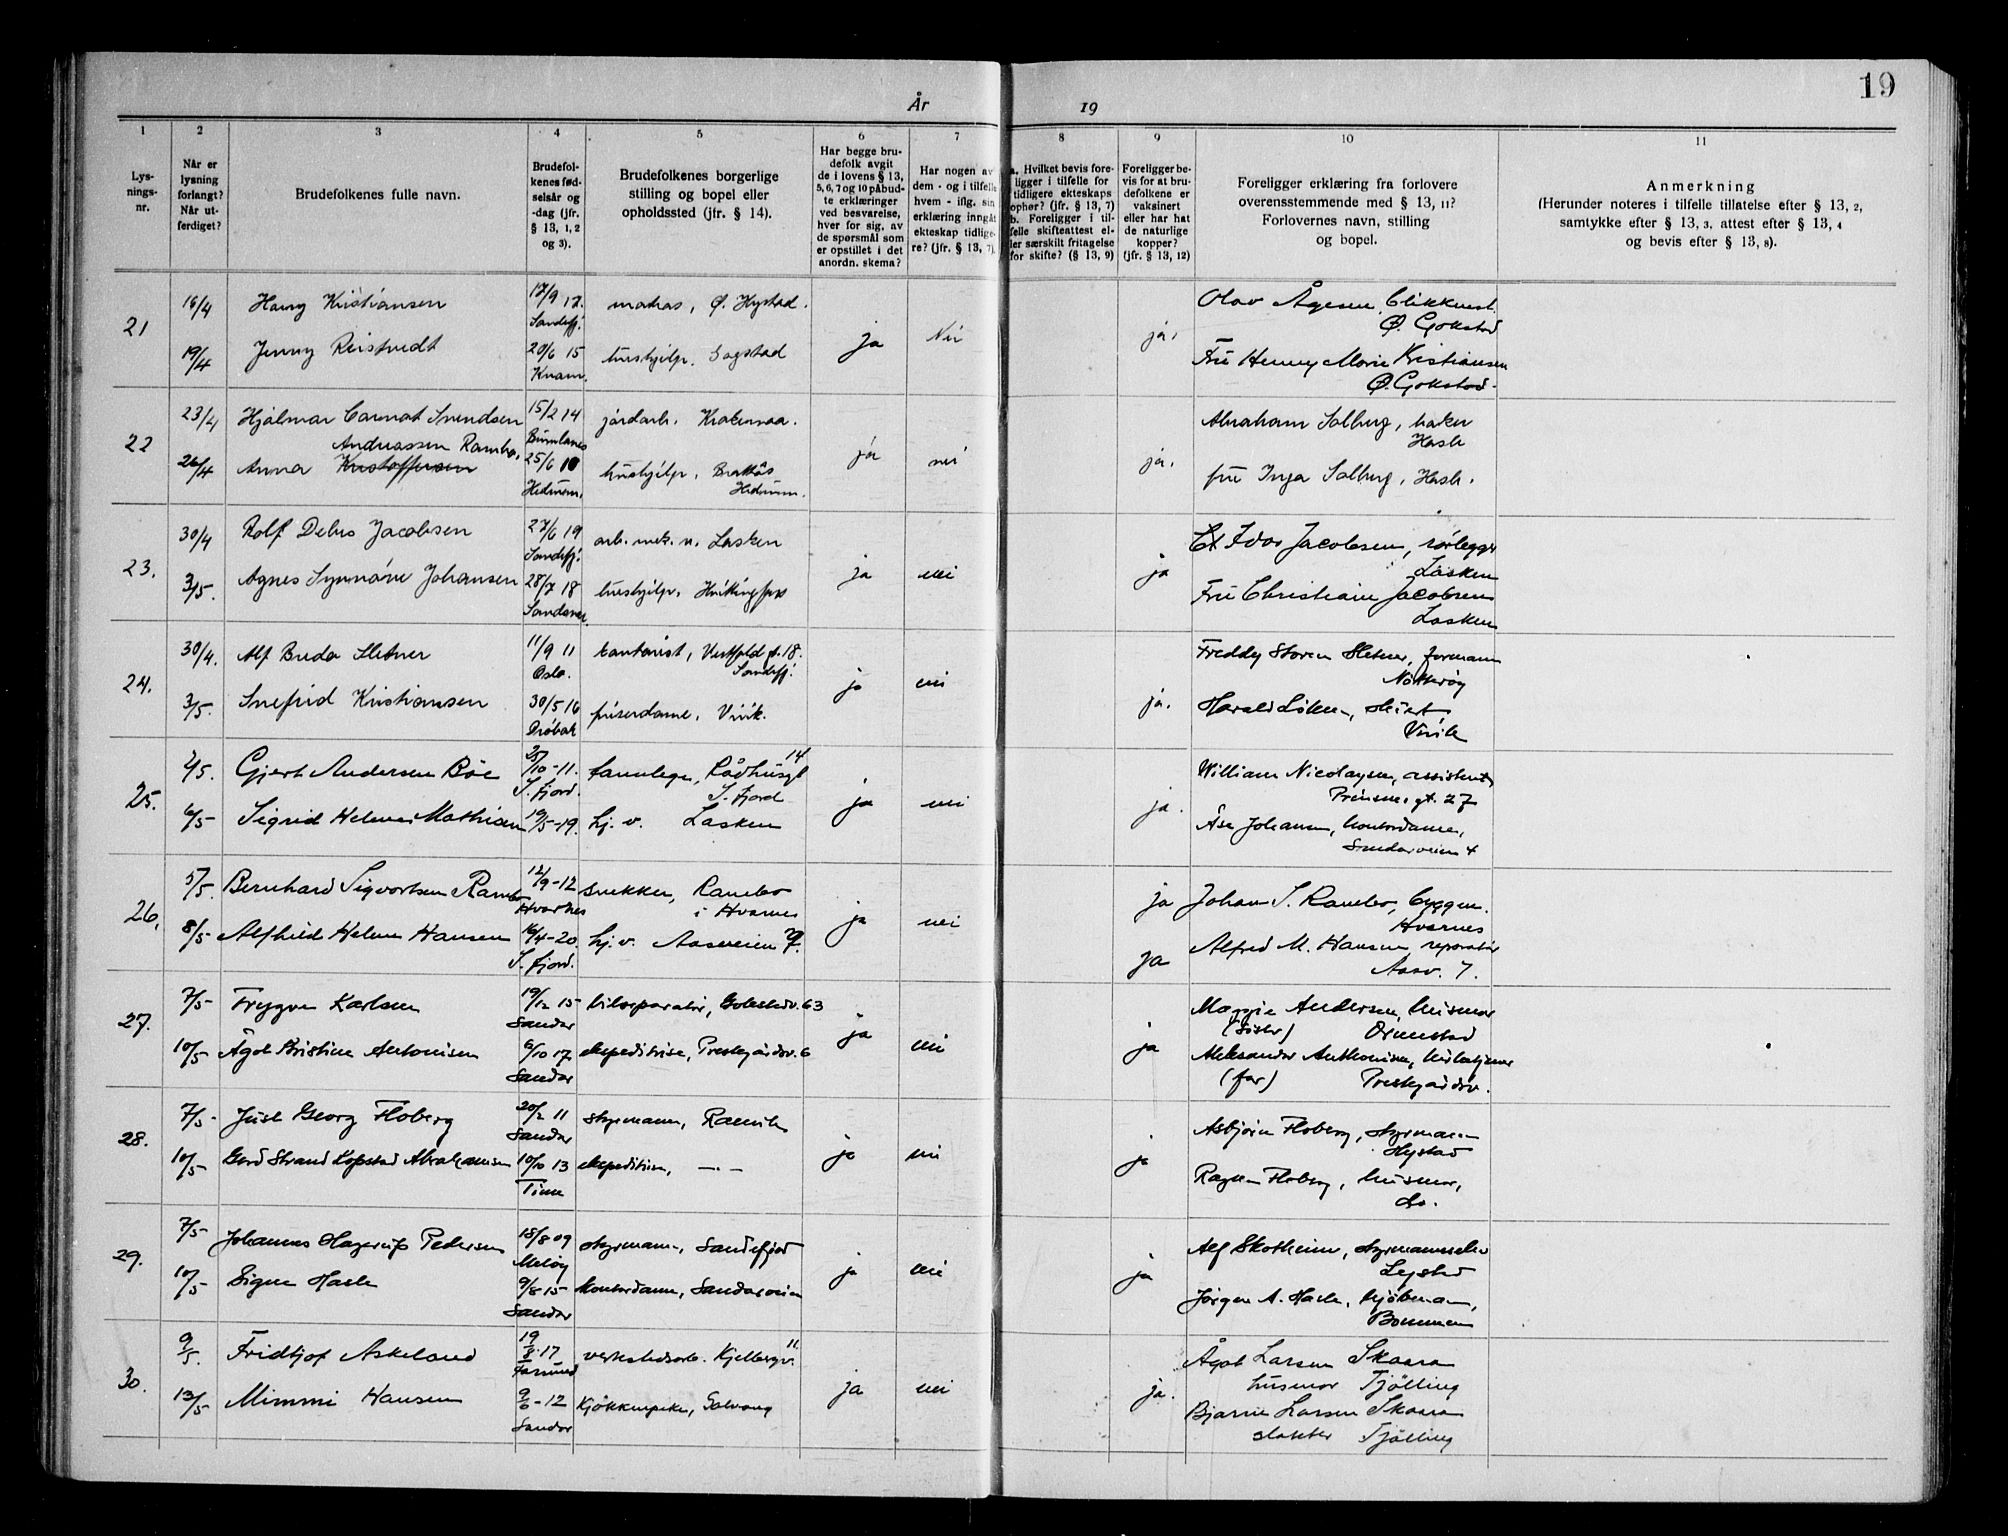 19
År 19
1 2 3 4 5 6 7 8 9 10 11
Lys-
nings-
nr.
Når er
lysning
forlangt?
Når ut-
ferdiget?
Brudefolkenes fulle navn.
Brudefol-
kenes fød-
selsår og
-dag (jfr.
§ 13, 1, 2
og 3).
Brudefolkenes borgerlige
stilling og bopel eller
opholdssted (jfr. § 14).
Har begge bru-
defolk avgit
de i lovens § 13,
5, 6, 7 og 10 påbud-
te erklæringer
ved besvarelse,
hver for sig, av
de spørsmål som
er opstillet i det
anordn. skema?
Har nogen av
dem - og i tilfelle
hvem - iflg. sin
erklæring inngåt
ekteskap tidlige-
re? (jfr. § 13, 7).
a. Hvilket bevis fore-
ligger i tilfelle for
tidligere ekteskaps
ophør? (jfr. § 13, 7)
b. Foreligger i til-
felle skifteattest el-
ler særskilt fritagelse
for skifte? (§ 13, 9)
Foreligger be-
vis for at bru-
defolkene er
vaksinert
eller har hat
de naturlige
kopper?
(jfr. § 13, 12)
Foreligger erklæring fra forlovere
overensstemmende med § 13, 11?
Forlovernes navn, stilling
og bopel.
Anmerkning
(Herunder noteres i tilfelle tillatelse efter § 13, 2,
samtykke efter § 13, 3, attest efter § 13, 4
og bevis efter § 13, 8).
21
16/4 Harry Kristiansen 17/9 17. Sandefj. matros, Ø. Hystad.
19/4 Jenny 20/6 15 hushjelp.
ja Nei ja.
Olav Ågesen,
Ø. Gokstad
Fru Henny Marie Kristiansen
Ø. Gokstad.
22
23/4 Hjalmar Svendsen 15/2 14 jordarb.
Andreassen Rambo,
26/4 Anna Kristoffersen 25/6 10 hushjelp.
Hedrum. Hedrum.
ja nei ja.
Abraham Solberg, baker
Hasle
fru Inga Solberg, Hasle.
23.
30/4 Rolf Jacobsen 27/6 19 Sandefj. arb. mek. v. Lasken
3/5. Agnes Synnøve Johansen 28/7 18 hushjelp.
ja nei ja
Jacobsen, rørlegger
Lasken
Fru Christiane Jacobsen
Lasken
24.
30/4. Alf Breda Sletner 11/9 11 Oslo. kontorist, Vestfold gt. 18.
Sandefj.
3/5. Snefrid Kristiansen 30/5 16 Drøbak frisørdame, Virik.
ja nei ja.
Freddy Sletner, formann
Nøtterøy
Harald
Virik
25.
2/5. Gjert Andersen Bøe 25/10-11. S. fjord. tannlege, Rådhusgt 14
S. fjord
6/5 Sigrid Helene Mathisen 19/5-19. hj. v. Lasken
ja nei ja.
William Nicolaysen, assistent,
Prinsens gt. 27
Åse Johansen, kontordame,
Sandarveien 4
26.
5/5. Bernhard Sigvartsen Rambo 12/9-12 Hvarnes snekker, Rambo
i Hvarnes
8/5 Alfhild Helene Hansen 16/4-20. S. fjord. hj. v. Aasveien 7.
ja nei ja
Johan S. Rambo, byggm.
Hvarnes
ja Alfred M. Hansen reparatør
Aasv. 7.
27.
7/5 Trygve Karlsen 19/12 15 Sandar bilreparatør, Gokstadv. 63
10/5 Ågot Kristine Antonisen 6/10 17 Sandar ekspeditrise, Prestegårdsv. 6
ja nei ja
Maggie Andersen, husmor
(søster) Ormestad
Aleksander Anthonisen,
(far) Prestegårdsv.
28.
7/5- Just Georg Floberg 20/2 11 Sandar styrmann,
10/5 Gerd Strand Kopstad Abrahamsen 10/10 13 Time ekspeditrise, —·—
ja nei ja
Asbjørn Floberg, styrmann
Hystad
Ragna Floberg, husmor,
do.
29.
7/5 Johannes Hagerup Pedersen 18/8 09 Meløy styrmann, Sandefjord
10/5 Signe Hasle 9/8 15- Sandar Kontordame, Sandarveien
ja nei ja
Alf Skotheim,
Jørgen A. Hasle, kjøbmann,
Bommen
30.
9/5. Fridtjof Askeland 19/8·17 Farsund verkstedsarb. Kjelbergv. 11
13/5 Mimmi Hansen 9/6-12 Sandar Kjøkkenpike, Solvang
ja nei ja.
Ågot Larsen Skaara
husmor Tjølling
Bjarne Larsen Skaara
slakter Tjølling